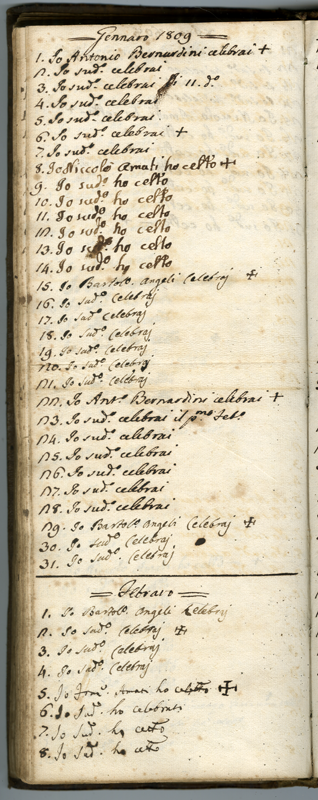 Gennaro 1809
1. Io Antonio Bernardini celebrai +
2. Io sud.o celebrai
3. Io sud.o celebrai 11. d.o
4. Io sud.o celebrai
5. Io sud.o celebrai
6. Io sud.o celebrai +
7. Io sud.o celebrai
8. Io Niccolò Amati ho celto +
9. Io sud.o ho celto
10. Io sud.o ho celto
11. Io sud.o ho celto
12. Io sud.o ho celto
13. Io sud.o ho celto
14. Io sud.o ho celto
15. Io Bartolo. Angeli Celebraj +
16. Io sud.o Celebraj
17. Io sud.o Celebraj
18. Io sud.o Celebraj
19. Io sud.o Celebraj
20. Io sud.o Celebraj
21. Io sud.o Celebraj
22. Io Ant.o Bernardini celebrai +
23. Io sud.o celebrai il p.mo
24. Io sud.o celebrai
25. Io sud.o celebrai
26. Io sud.o celebrai
27. Io sud.o celebrai
28. Io sud.o celebrai
29. Io Bartolo. Angeli Celebraj +
30. Io sud.o Celebraj
31. Io sud.o Celebraj
Febraro
1. Io Bartolo. Angeli Celebraj
2. Io sud.o Celebraj +
3. Io sud.o Celebraj
4. Io sud.o Celebraj
5. Io Amati ho celto +
6. Io sud.o ho celebrati
7. Io sud.o ho celto
8. Io sud.o ho celto